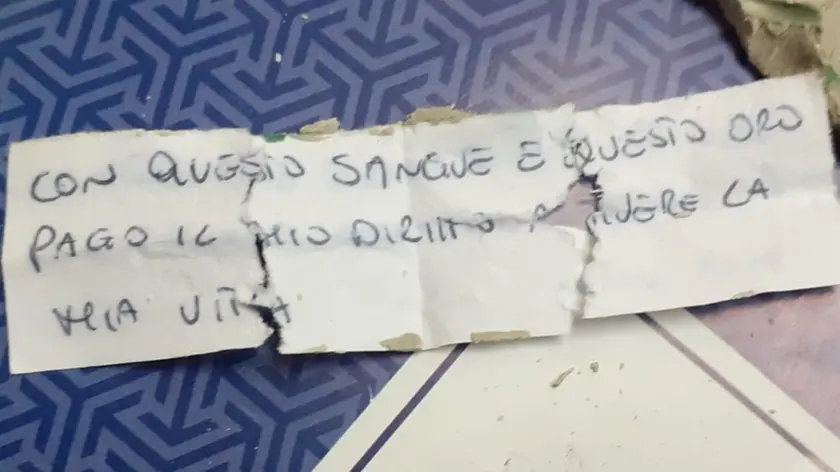 CON QUESTO SANGUE E QUESTO ORO
PAGO IL MIO DIRITTO A VIVERE LA
MIA VITA